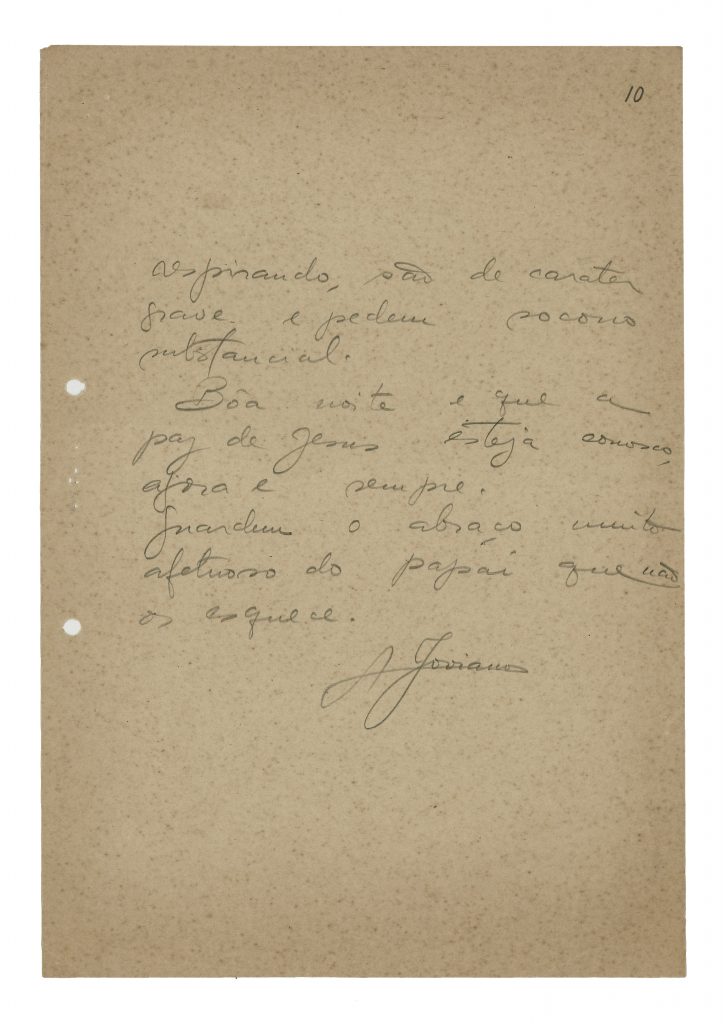 10
respirando, são de carater
grave e pedem socorro
substancial.
Bôa noite e que a
paz de Jesus esteja conosco,
agora e sempre.
Guardem o abraço muito
afetuoso do papái que não
os esquece.
A Joviano